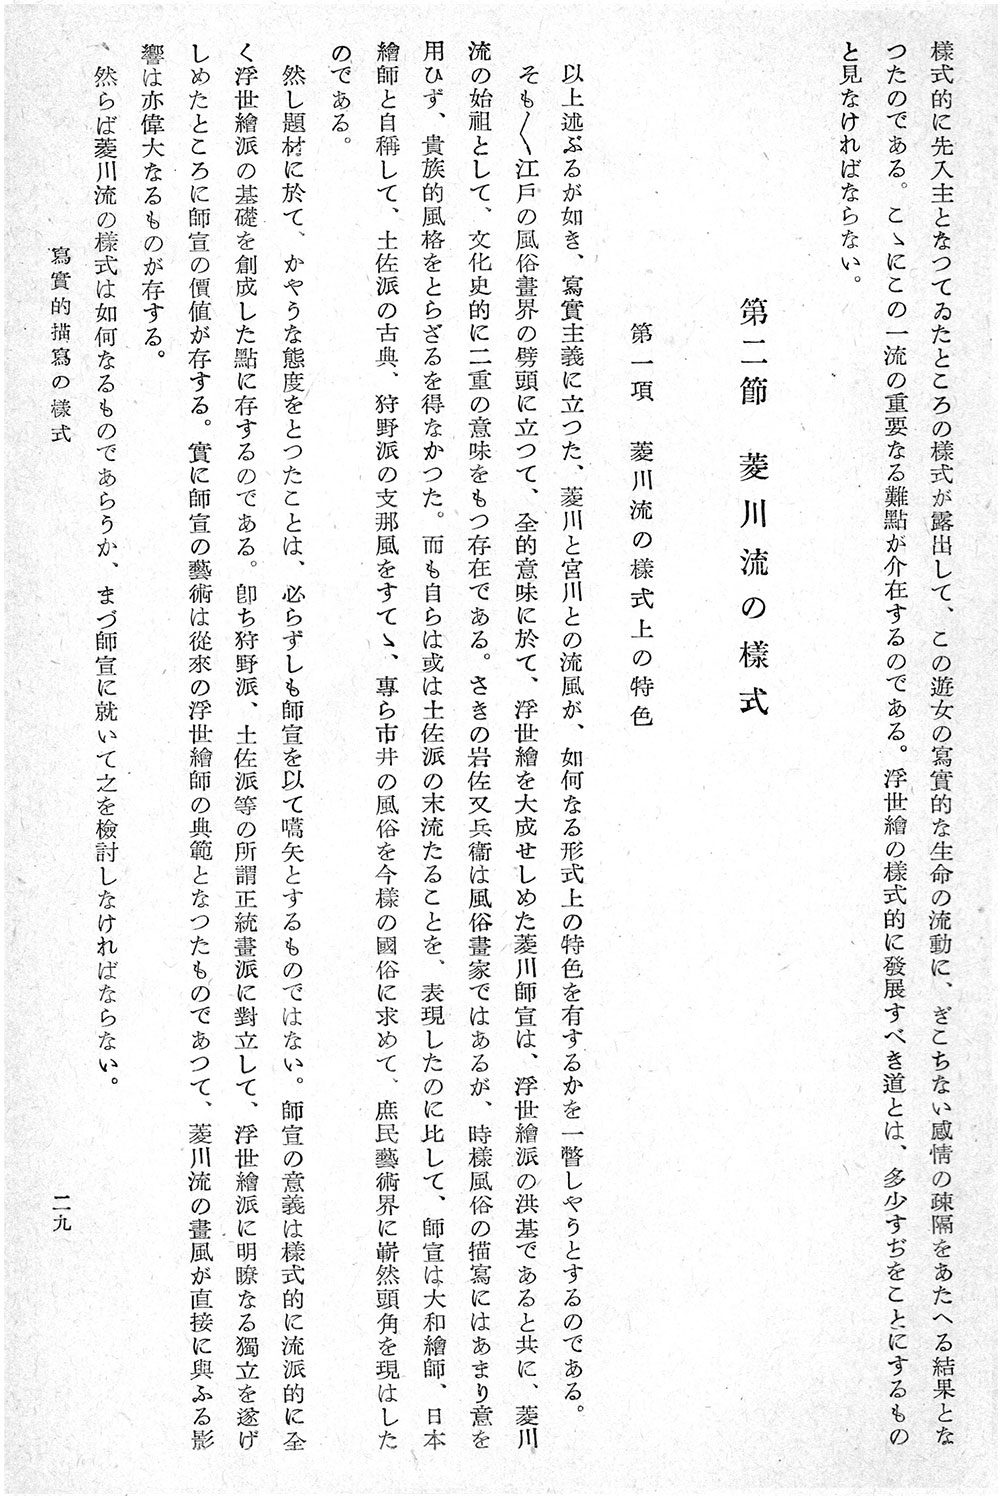 樣式的に先入主となつてゐたところの樣式が露出して、この遊女の寫實的な生命の流動に、ぎこちない感情の疎隔をあたへる結果とな
つたのである。こゝにこの一流の重要なる難點が介在するのである。浮世繪の樣式的に發展すべき道とは、多少すぢをことにするもの
と見なければならない。
第二節　菱川流の樣式
第一項　菱川流の樣式上の特色
以上述ぶるが如き、寫實主義に立つた、菱川と宮川との流風が、如何なる形式上の特色を有するかを一瞥しやうとするのである。
そも〳〵江戶の風俗畫界の劈頭に立つて、全的意味に於て、浮世繪を大成せしめた菱川師宣は、浮世繪派の洪基であると共に、菱川
流の始祖として、文化史的に二重の意味をもつ存在である。さきの岩佐又兵衞は風俗畫家ではあるが、時樣風俗の描寫にはあまり意を
用ひず、貴族的風格をとらざるを得なかつた。而も自らは或は土佐派の末流たることを、表現したのに比して、師宣は大和繪師、日本
繪師と自稱して、土佐派の古典、狩野派の支那風をすてゝ、專ら市井の風俗を今樣の國俗に求めて、庶民藝術界に嶄然頭角を現はした
のである。
然し題材に於て、かやうな態度をとつたことは、必らずしも師宣を以て嚆矢とするものではない。師宣の意義は樣式的に流派的に全
く浮世繪派の基礎を創成した點に存するのである。卽ち狩野派、土佐派等の所謂正統畫派に對立して、浮世繪派に明瞭なる獨立を遂げ
しめたところに師宣の價値が存する。實に師宣の藝術は從來の浮世繪師の典範となつたものであつて、菱川流の畫風が直接に與ふる影
響は亦偉大なるものが存する。
然らば菱川流の樣式は如何なるものであらうか、まづ師宣に就いて之を檢討しなければならない。
寫實的描寫の樣式
二九